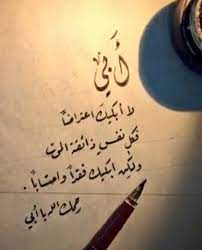 أبي
لا أبكيك اعتراضاً
فكل نفس ذائقة الموت
ولكن أبكيك فقداً واحتساباً .
رحمك الله يا أبي